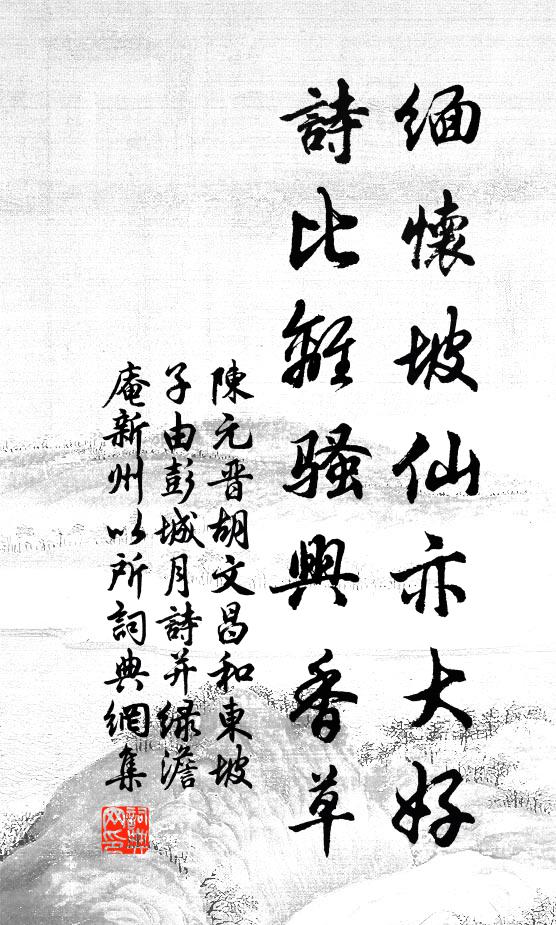 緬懷坡仙亦大好
詩比離騷興香草
陳元晋胡文昌和東坡
子由彭城月詩并緑澹
庵新州以所詞典網集
詞典網印